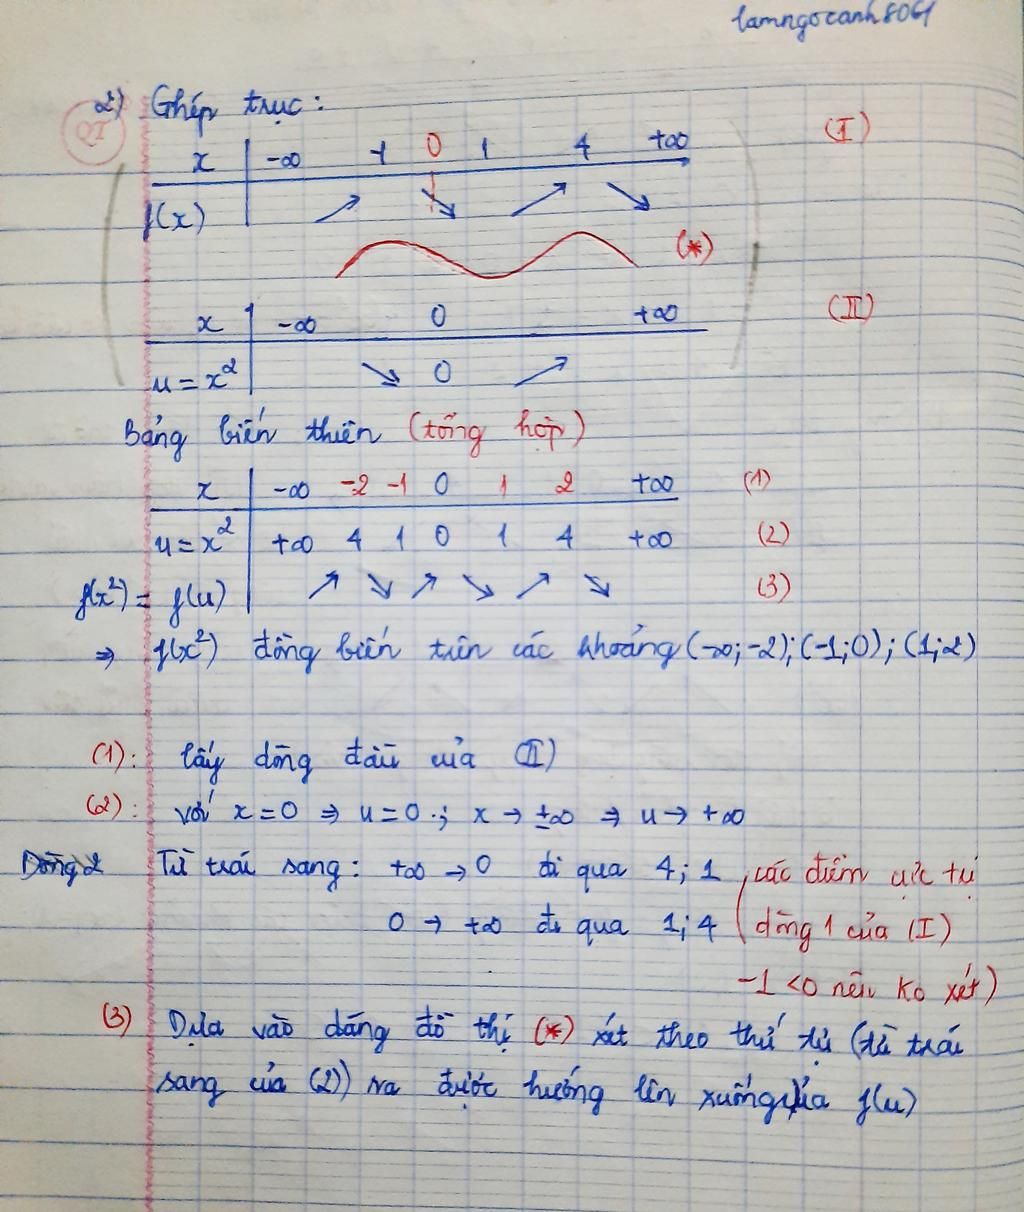 lamngocanh8061
2) Ghép trục:
QT
x -∞ -1 0 1 4 +∞ (I)
f(x) ↗ ↘ ↗ ↘
(*)
x -∞ 0 +∞ (II)
u = x² ↘ 0 ↗
Bảng biến thiên (tổng hợp)
x -∞ -2 -1 0 1 2 +∞ (1)
u = x² +∞ 4 1 0 1 4 +∞ (2)
f(x²) = f(u) ↗ ↘ ↗ ↘ ↗ ↘ (3)
⇒ f(x²) đồng biến trên các khoảng (-∞; -2); (-1; 0); (1; 2)
(1): lấy dòng đầu của (II)
(2): với x = 0 ⇒ u = 0; x → ±∞ ⇒ u → +∞
Dòng 2 Từ trái sang: +∞ → 0 đi qua 4; 1 (các điểm cực trị
0 → +∞ đi qua 1; 4 dòng 1 của (I)
-1 < 0 nên ko xét)
(3) Dựa vào dáng đồ thị (*) xét theo thứ tự (từ trái
sang của (2)) ra được hướng lên xuống của f(u)